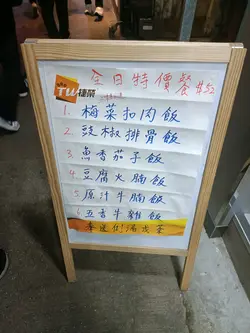 TW捷榮
全日特價餐 #52
1. 梅菜扣肉飯
2. 豉椒排骨飯
3. 魚香茄子飯
4. 豆腐火腩飯
5. 原汁牛腩飯
6. 五香牛雜飯